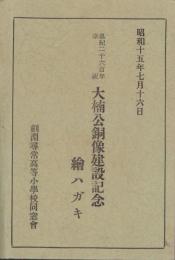 昭和十五年七月十六日
皇紀二千六百年
奉祝
大楠公銅像建設記念
繪ハガキ
劔淵尋常高等小學校同窓會